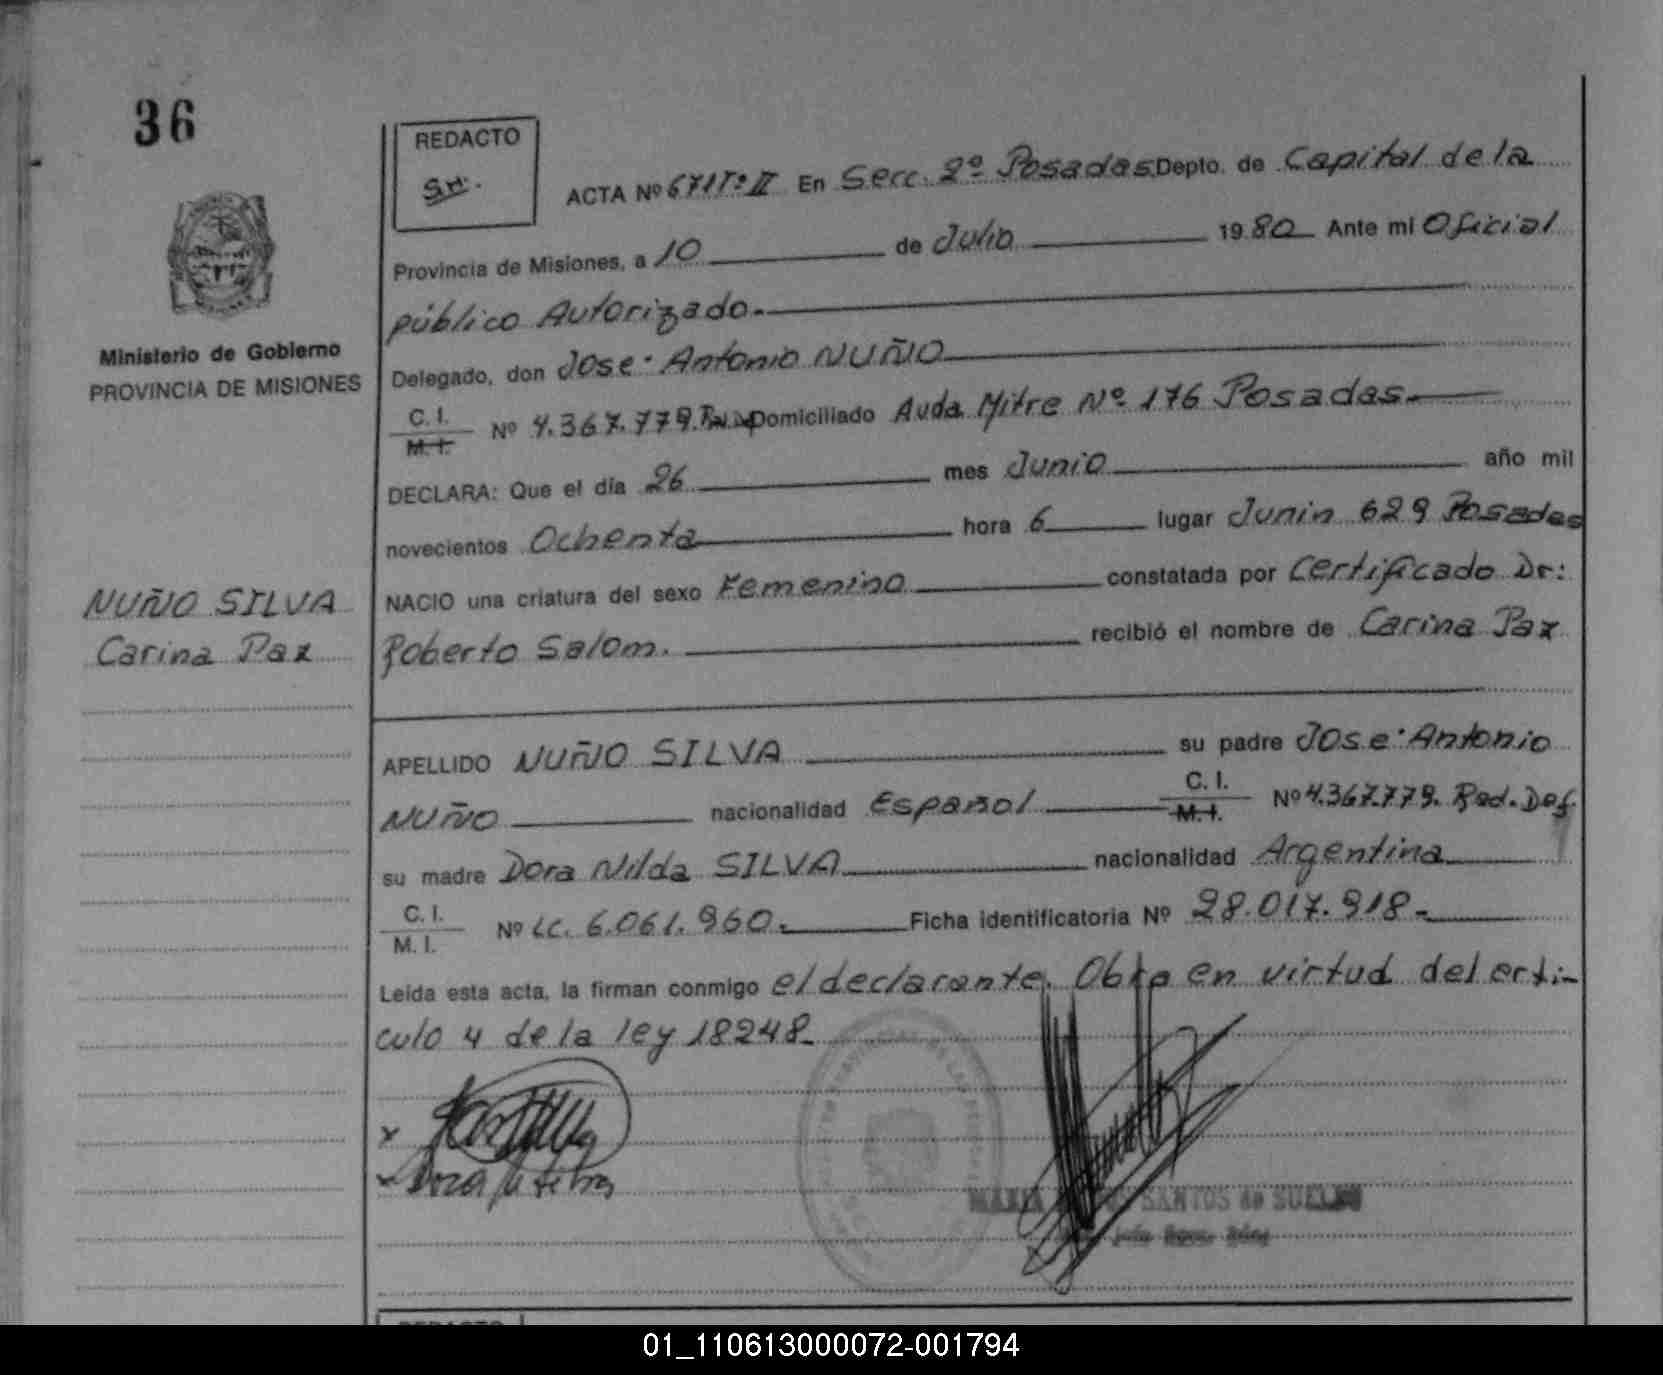 36
REDACTO
ACTA Nº 671 Tº II En Secc. 2º Posadas Depto. de Capital de la
Provincia de Misiones, a 10 de Julio 1980 Ante mi Oficial
público Autorizado.
Ministerio de Gobierno
PROVINCIA DE MISIONES
Delegado, don Jose Antonio NUÑO
C. I.
M. I.
Nº 4.367.779. Domiciliado Avda Mitre Nº 176 Posadas.
DECLARA: Que el día 26 mes Junio año mil
novecientos Ochenta hora 6 lugar Junin 629 Posadas
NUÑO SILVA
Carina Paz
NACIO una criatura del sexo Femenino constatada por Certificado Dr:
Roberto Salom. recibió el nombre de Carina Paz
APELLIDO NUÑO SILVA su padre Jose Antonio
NUÑO nacionalidad Español C. I.
M. I.
Nº 4.367.779. Pod. Def.
su madre Dora Nilda SILVA nacionalidad Argentina
C. I.
M. I.
Nº LC. 6.061.960. Ficha identificatoria Nº 28.017.918.
Leída esta acta, la firman conmigo el declarante. Obra en virtud del arti-
culo 4 de la ley 18248.
x
SANTOS de SUELDO
REDACTO
01_110613000072-001794